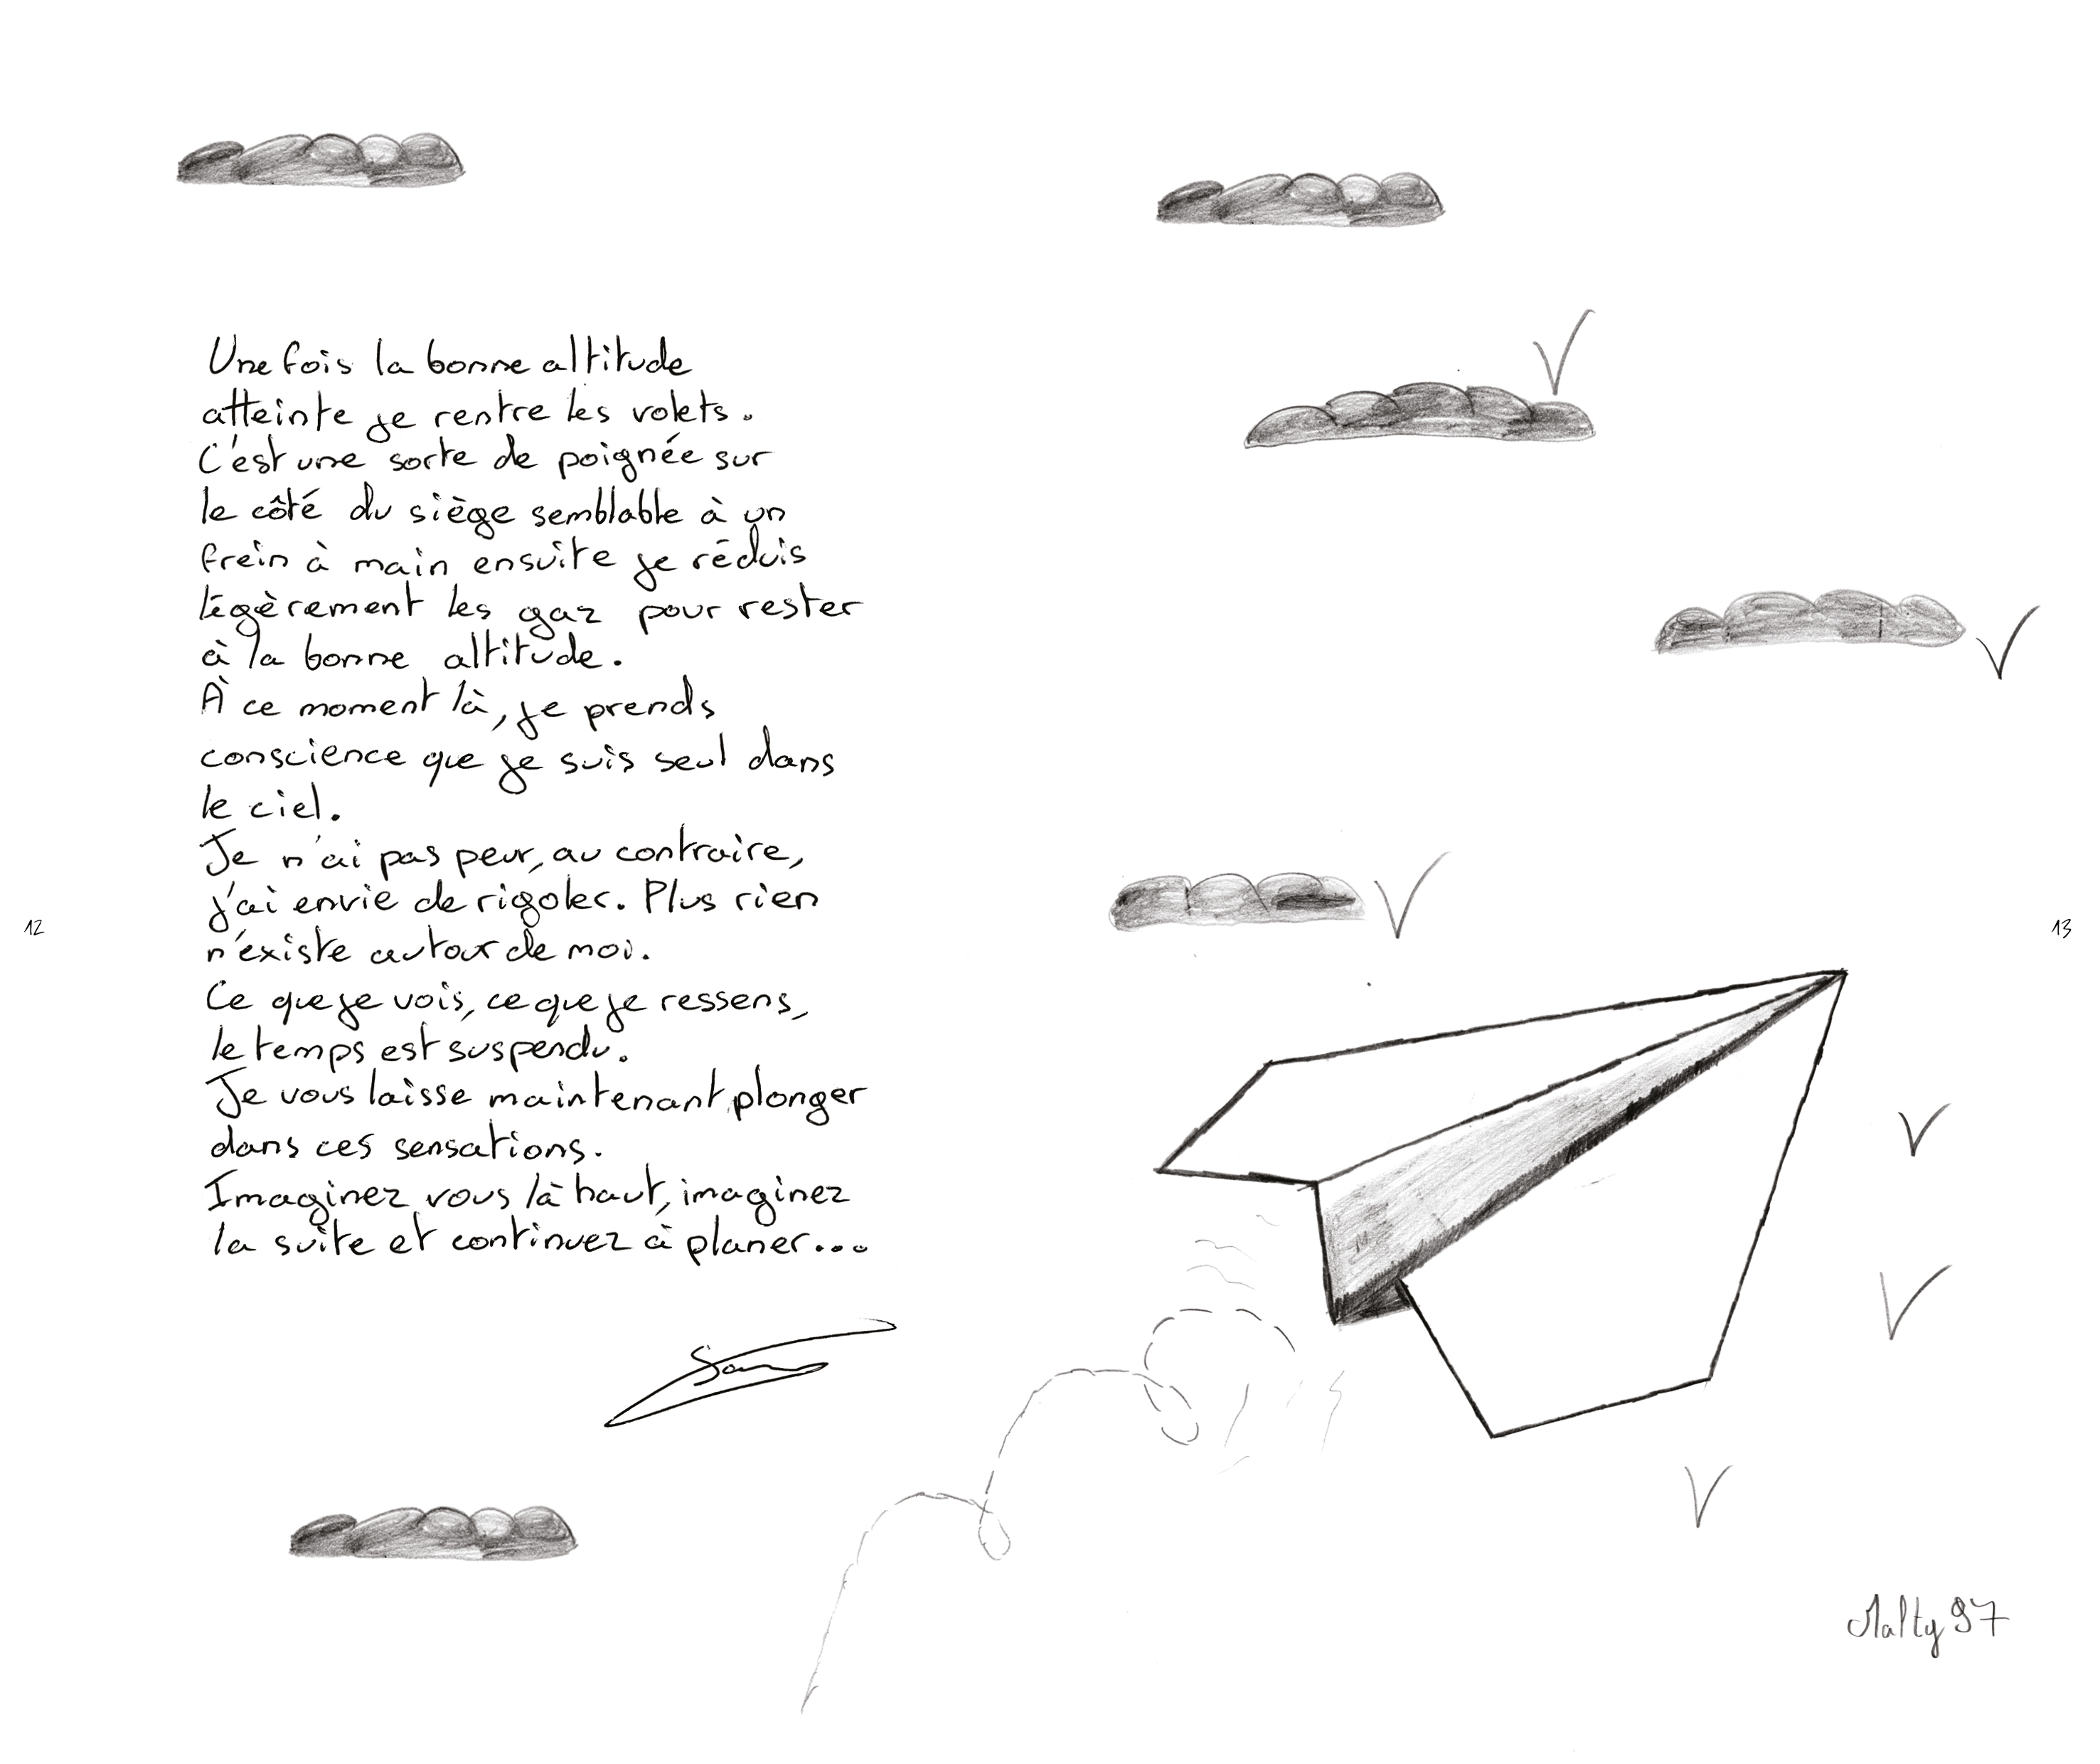 Une fois la bonne altitude
atteinte je rentre les volets.
C'est une sorte de poignée sur
le côté du siège semblable à un
frein à main ensuite je réduis
légèrement les gaz pour rester
à la bonne altitude.
À ce moment là, je prends
conscience que je suis seul dans
le ciel.
Je n'ai pas peur, au contraire,
j'ai envie de rigoler. Plus rien
n'existe autour de moi.
Ce que je vois, ce que je ressens,
le temps est suspendu.
Je vous laisse maintenant plonger
dans ces sensations.
Imaginez vous là haut, imaginez
la suite et continuez à planer...
12
13
Malty 97